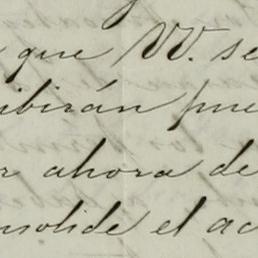 que VV. se
ibirán pue
r ahora de
nsolide el ac